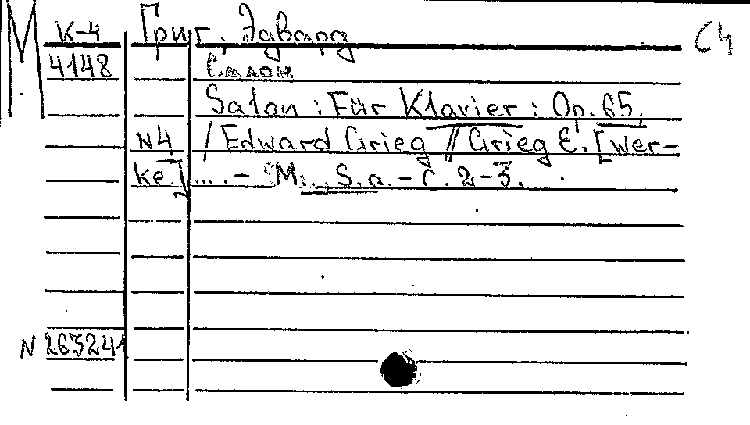 М К-4 Григ, Эдвард С4
4148 Салон.
Salon : Für Klavier : Op. 65,
N4 / Edward Grieg // Grieg E. [Wer-
ke.] ... . - М., S.a. - С. 2-3.
N 263241